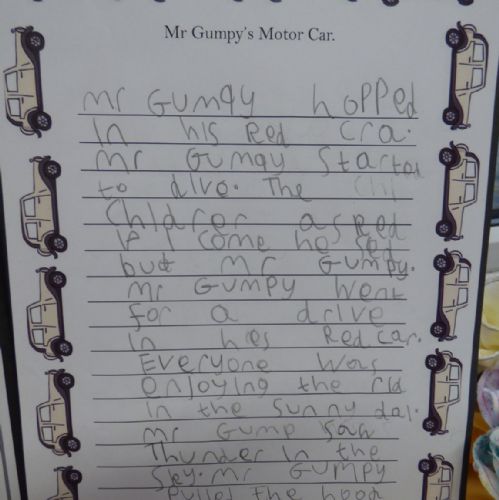 Mr Gumpy's Motor Car.
Mr Gumqy hopped
in his Red cra.
Mr Gumqy Started
to dive. The Chi
Children asked
if I come he sed
but Mr Gumpy.
Mr Gumpy went
For a drive
in hes Red car.
Everyone was
enjoying the rid
in the Sunny dai.
Mr Gump Saw
Thunder in the
Sky. Mr Gumpy
Pulled the hood